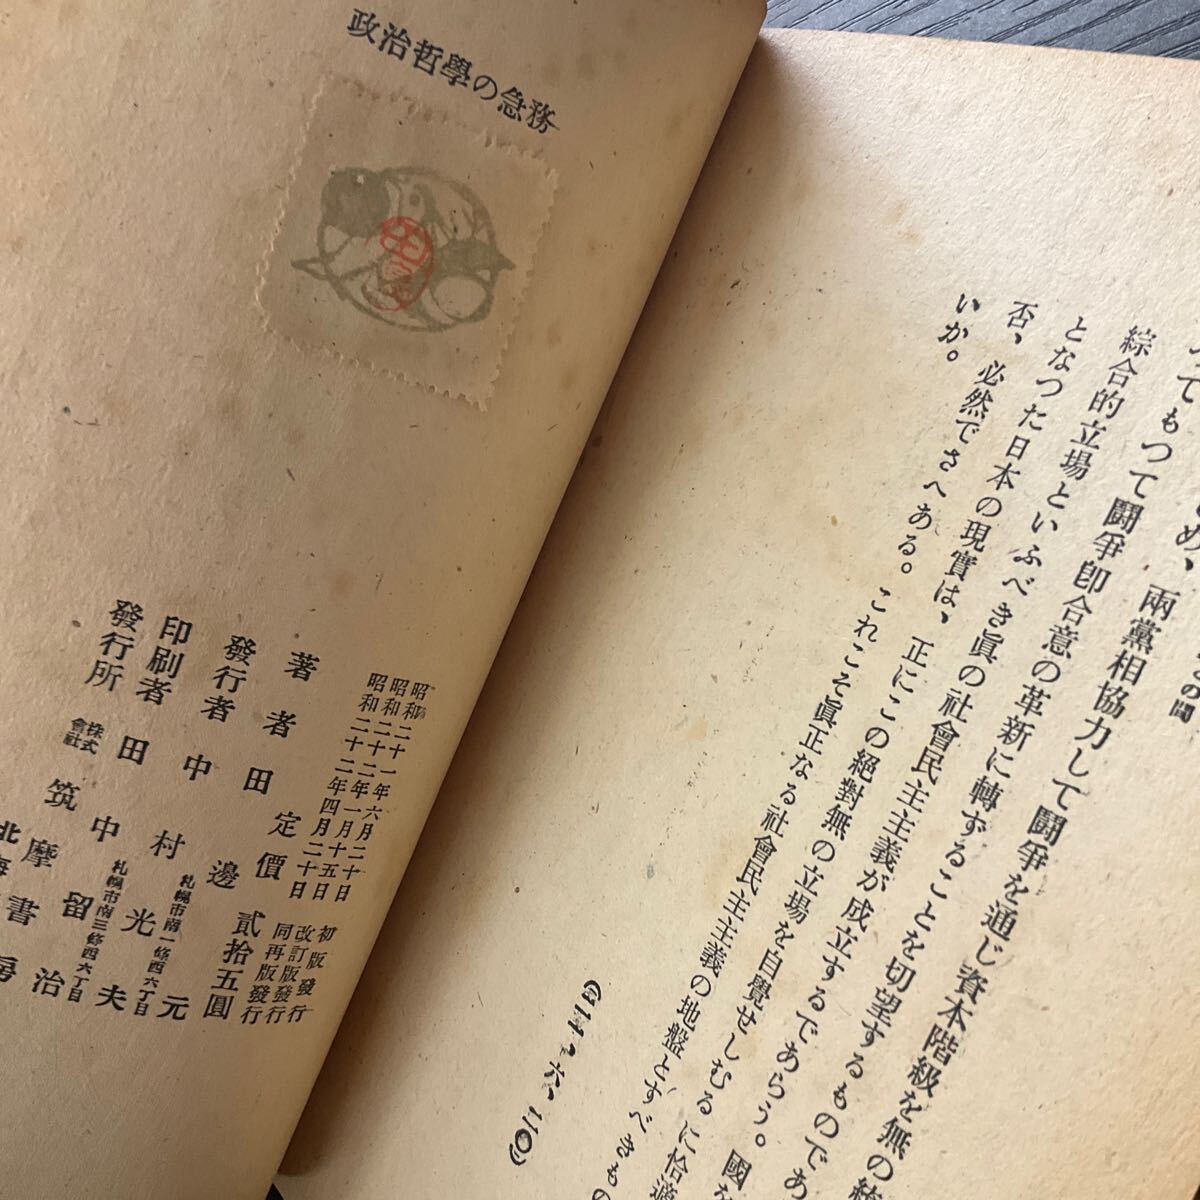 この間
め、兩黨相協力して鬪爭を通じ資本階級を無の
てもつて鬪爭卽合意の革新に轉ずることを切望するものであ
綜合的立場といふべき眞の社會民主主義が成立するであらう。國を
となつた日本の現實は、正にこの絕對無の立場を自覺せしむるに恰適
否、必然でさへある。これこそ眞正なる社會民主主義の地盤とすべきもの
いか。
(二一、六、二〇)
政治哲學の急務
昭和二十一年六月二十日 初版發行
昭和二十二年一月十五日 改訂版發行
昭和二十二年四月二十日 同再版發行
定價 貳拾五圓
著者 田邊元
札幌市南一條西六丁目
發行者 中村光夫
札幌市南三條西六丁目
印刷者 田中留治
發行所 株式會社 筑摩書房
北海